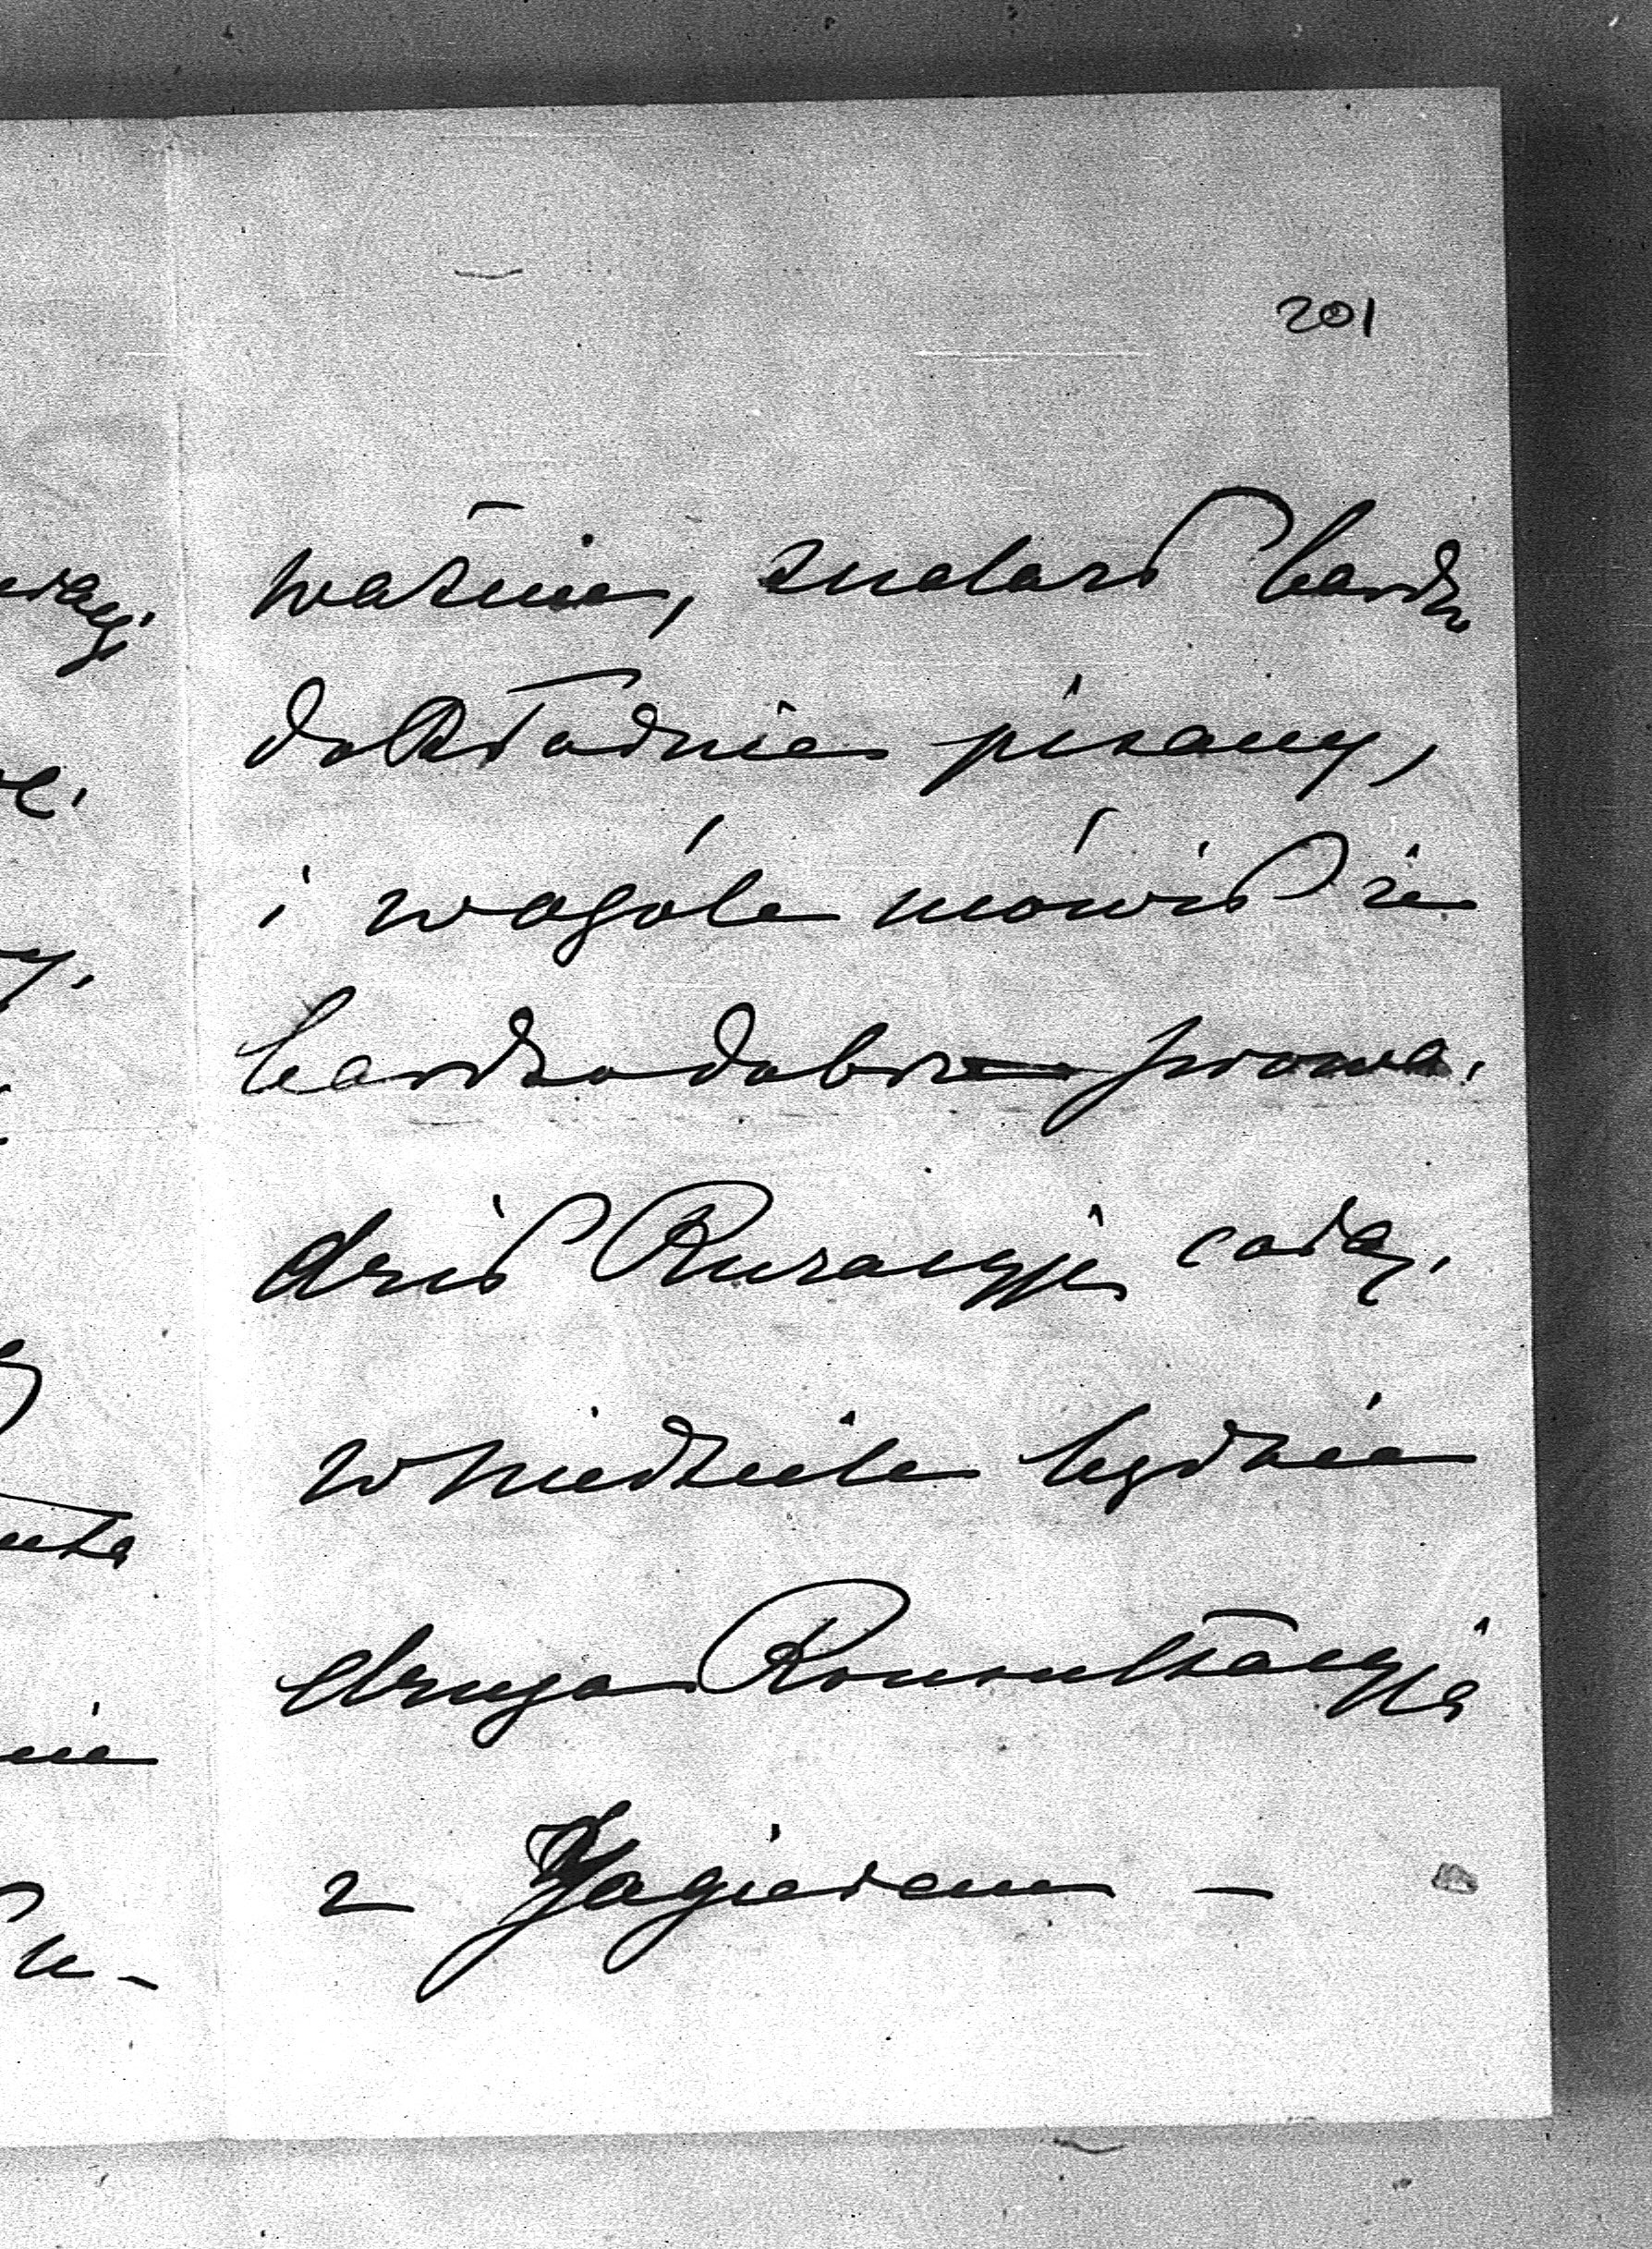 201
ważnie, znalazł bardzo
dokładnie pisany,
i wogóle mówił że
bardzo dobrze prowa-
dził Kuracyję całą.
w niedziele będzie
druga Konsultacyja
z